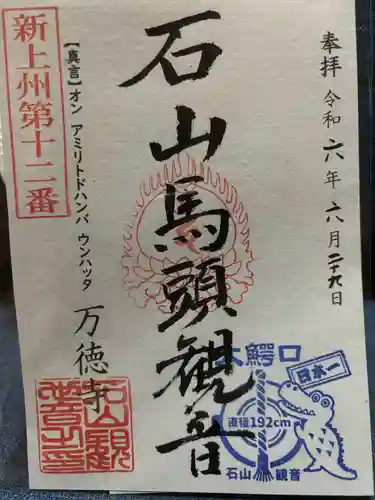 奉拝 令和六年六月二十九日
石山馬頭観音
新上州第十二番
【真言】オン アミリトドハンバ ウンハッタ
万徳寺
大鰐口
日本一
直径192cm
石山観音